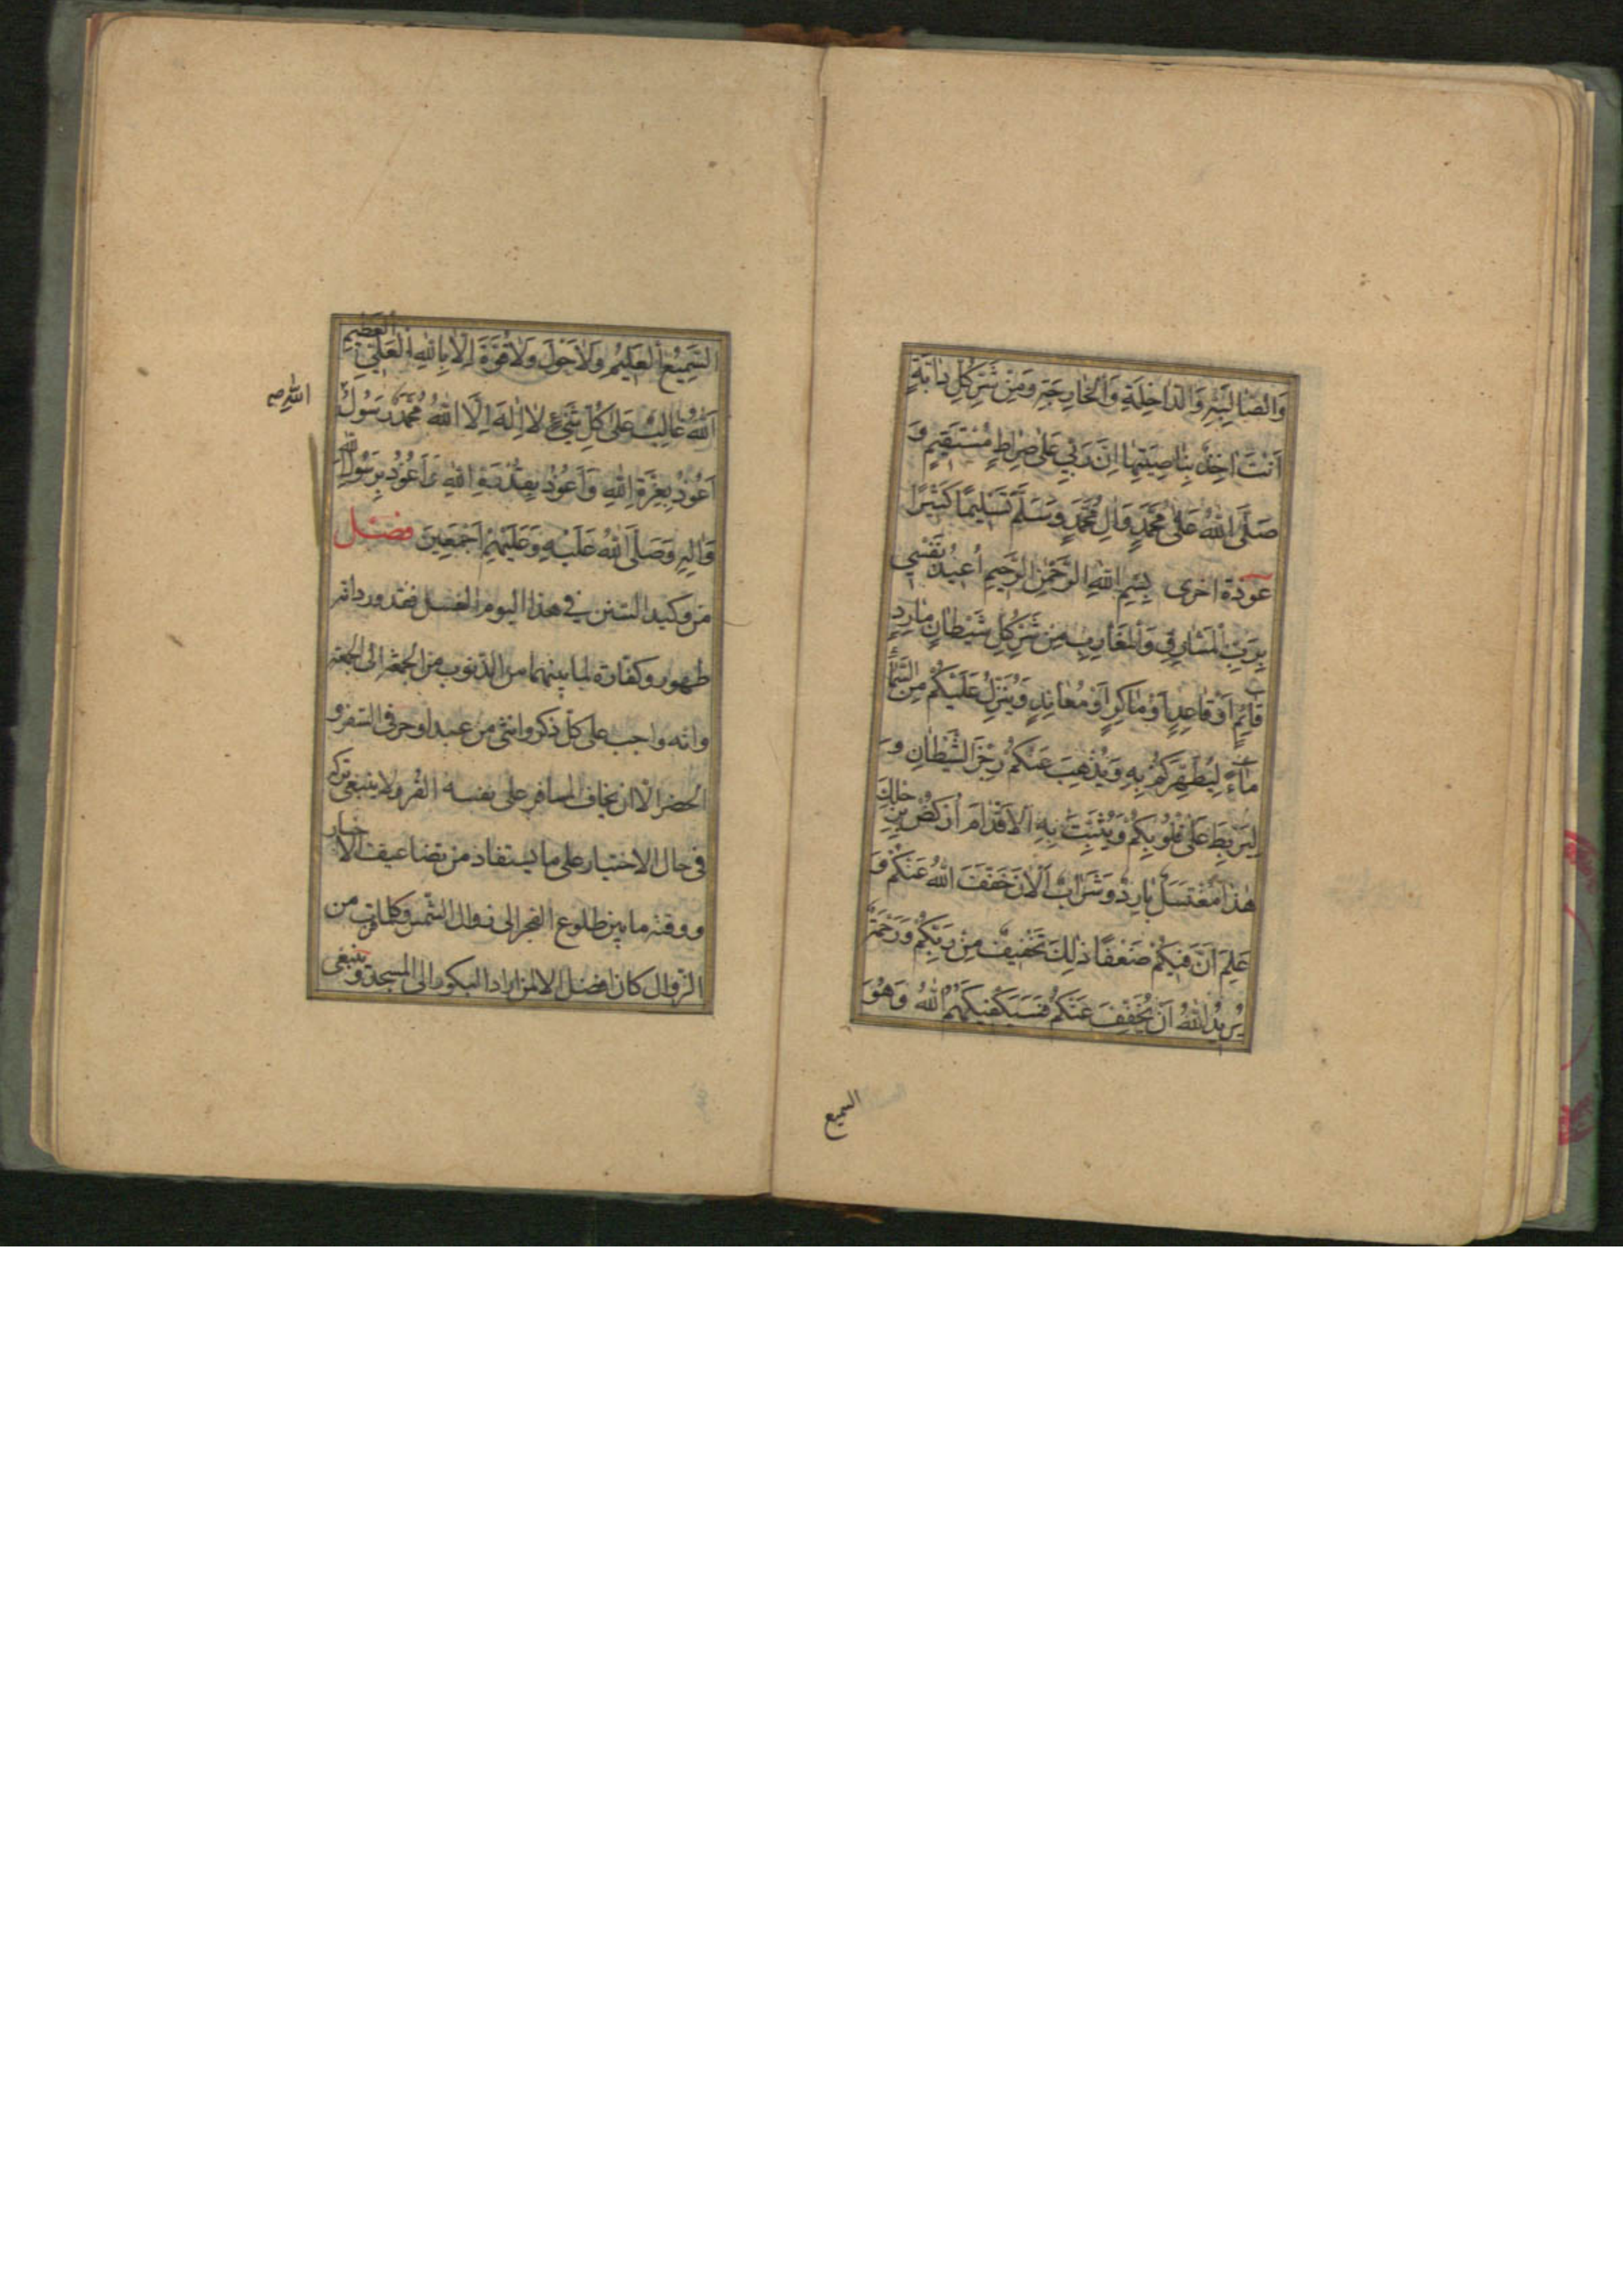 وَالصَّالِبَةِ وَالدَّاخِلَةِ وَالْخَارِجَةِ وَمِنْ شَرِّ كُلِّ دَابَّةٍ
اَنْتَ اٰخِذٌ بِنَاصِيَتِهَا اِنَّ رَبِّي عَلٰى صِرَاطٍ مُسْتَقِيمٍ وَ
صَلَّى اللّٰهُ عَلٰى مُحَمَّدٍ وَاٰلِ مُحَمَّدٍ وَسَلَّمَ تَسْلِيمًا كَثِيرًا
عَوذة اخرى بِسْمِ اللّٰهِ الرَّحْمٰنِ الرَّحِيمِ اُعِيذُ نَفْسِي
بِرَبِّ الْمَشَارِقِ وَالْمَغَارِبِ مِنْ شَرِّ كُلِّ شَيْطَانٍ مَارِدٍ
قَائِمٍ اَوْ قَاعِدٍ اَوْ مَاكِرٍ اَوْ مُعَانِدٍ وَيُنَزِّلُ عَلَيْكُمْ مِنَ السَّمَاءِ
مَاءً لِيُطَهِّرَكُمْ بِهِ وَيُذْهِبَ عَنْكُمْ رِجْزَ الشَّيْطَانِ وَ
لِيَرْبِطَ عَلٰى قُلُوبِكُمْ وَيُثَبِّتَ بِهِ الْاَقْدَامَ اُرْكُضْ بِرِجْلِكَ
هٰذَا مُغْتَسَلٌ بَارِدٌ وَشَرَابٌ اَلْاٰنَ خَفَّفَ اللّٰهُ عَنْكُمْ وَ
عَلِمَ اَنَّ فِيكُمْ ضَعْفًا ذٰلِكَ تَخْفِيفٌ مِنْ رَبِّكُمْ وَرَحْمَةٌ
يُرِيدُ اللّٰهُ اَنْ يُخَفِّفَ عَنْكُمْ فَسَيَكْفِيكَهُمُ اللّٰهُ وَهُوَ
السميع
السَّمِيعُ الْعَلِيمُ وَلَا حَوْلَ وَلَا قُوَّةَ اِلَّا بِاللّٰهِ الْعَلِيِّ الْعَظِيمِ
اَللّٰهُ غَالِبٌ عَلٰى كُلِّ شَيْءٍ لَا اِلٰهَ اِلَّا اللّٰهُ مُحَمَّدٌ رَسُولُ
الله ص
اَعُوذُ بِعِزَّةِ اللّٰهِ وَاَعُوذُ بِقُدْرَةِ اللّٰهِ وَاَعُوذُ بِرَسُولِ اللّٰهِ
وَاٰلِهِ وَصَلَّى اللّٰهُ عَلَيْهِ وَعَلَيْهِمْ اَجْمَعِينَ فصل
من وكيد السنن في هذا اليوم الغسل فقد ورد انه
طهور وكفارة لما بينهما من الذنوب من الجمعة الى الجمعة
وانه واجب على كل ذكر وانثى من عبد او حر في السفر و
الحضر الا ان يخاف المسافر على نفسه القر ولا ينبغي تركه
في حال الاختيار على ما يستفاد من تضاعيف الاخبار
ووقته ما بين طلوع الفجر الى زوال الشمس وكلما قرب من
الزوال كان افضل الا لمن اراد البكور الى المسجد وينبغي